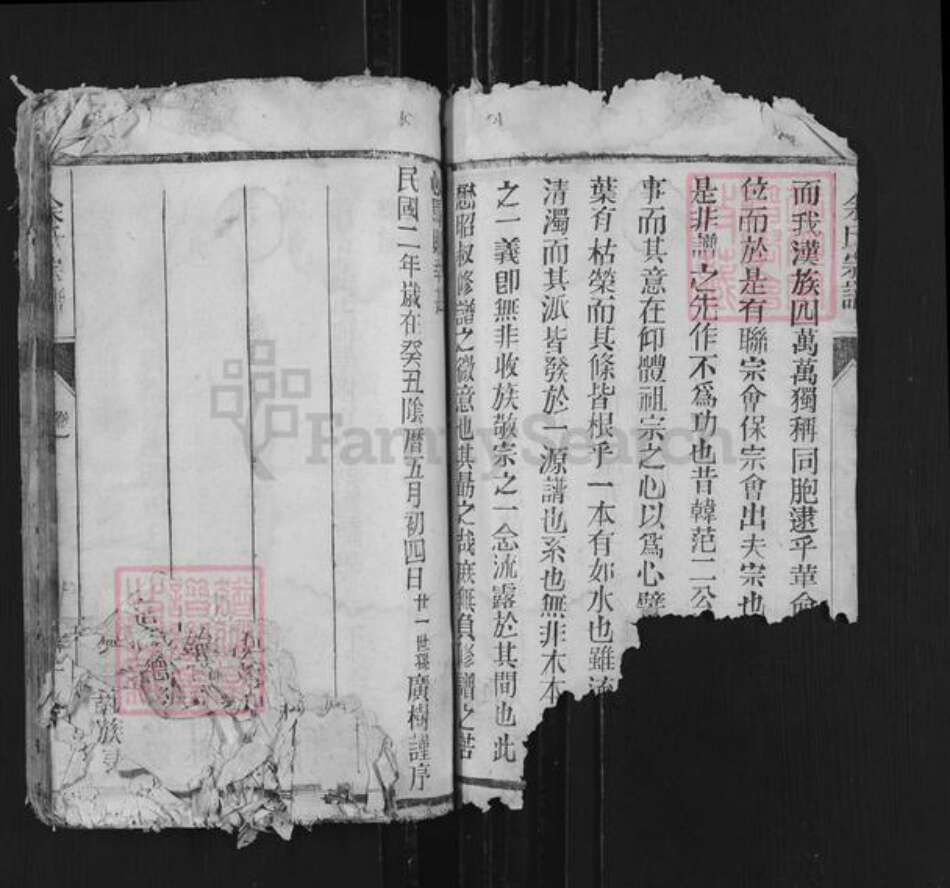 余氏宗譜
而我漢族四萬萬獨稱同胞逮乎革命
位而於是有聯宗會保宗會出夫宗也
是非譜之先作不為功也昔韓范二公
事而其意在仰體祖宗之心以為心譬
葉有枯榮而其條皆根乎一本有如水也雖流
清濁而其派皆發於一源譜也系也無非木本
之一義卽無非收族敬宗之一念流露於其間也此
懋昭叔修譜之微意也其勗之哉庶無負修譜之苦
民國二年歲在癸丑陰曆五月初四日世一世孫廣樹謹序
宗譜
卷
族
FamilySearch